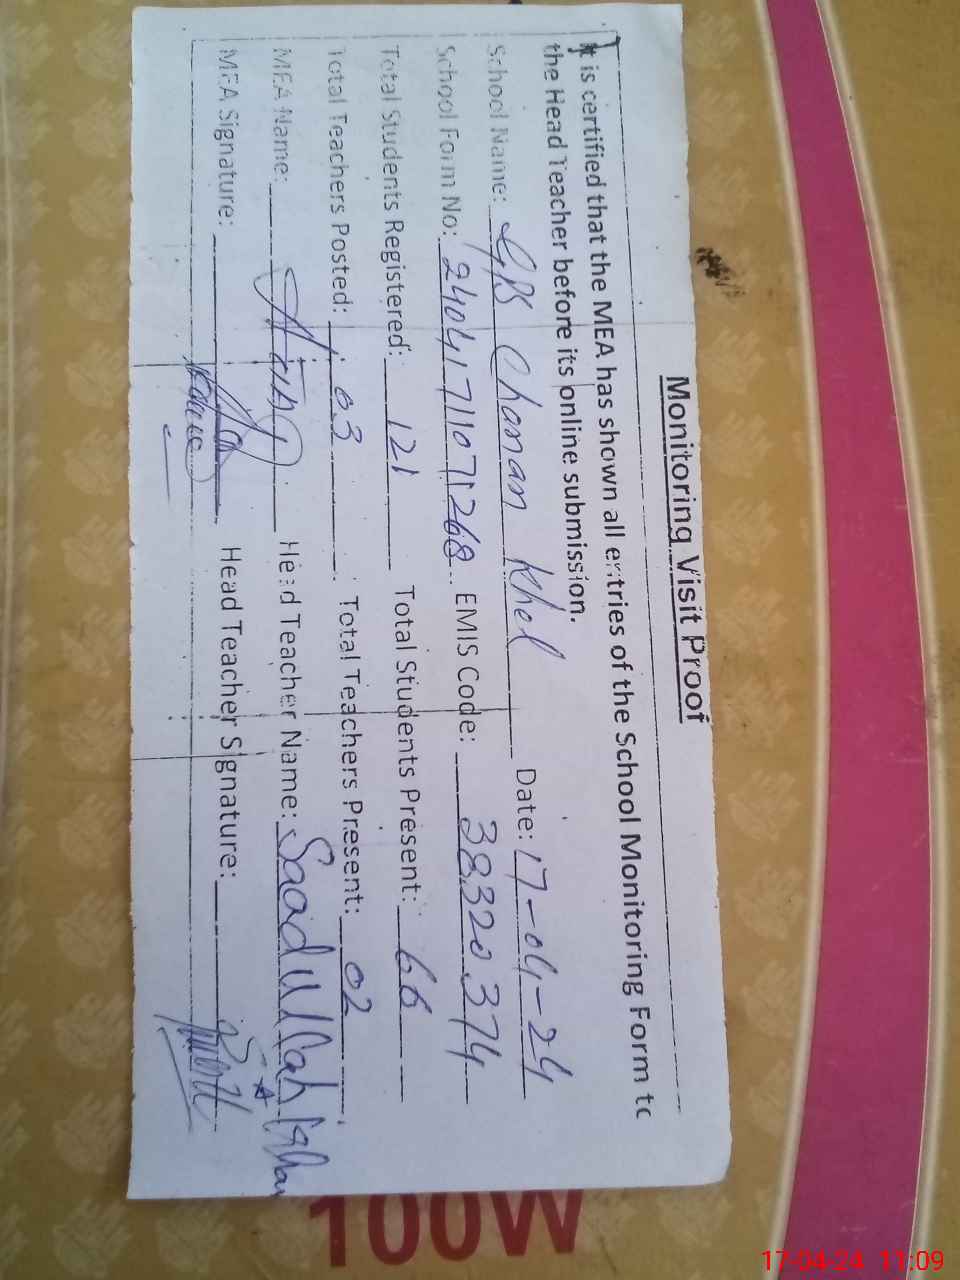 Monitoring Visit Proof
It is certified that the MEA has shown all entries of the School Monitoring Form to
the Head Teacher before its online submission.
School Name: GPS Chanan Khel Date: 17-04-24
School Form No: 24041711071268 EMIS Code: 38320374
Total Students Registered: 121 Total Students Present: 66
Total Teachers Posted: 03 Total Teachers Present: 02
MEA Name: Head Teacher Name: Saad Ullah Khan
MEA Signature: Head Teacher Signature:
100W
17-04-24 11:09